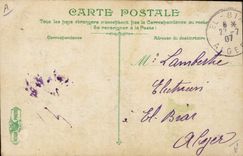 A
CARTE POSTALE
Tous les pays étrangers n'acceptent pas la Correspondance au recto
Se renseigner à la Poste
Correspondance
Adresse du destinataire
EL-BIAR
07
ALGER
Mr Lambertie
El Biar
Alger